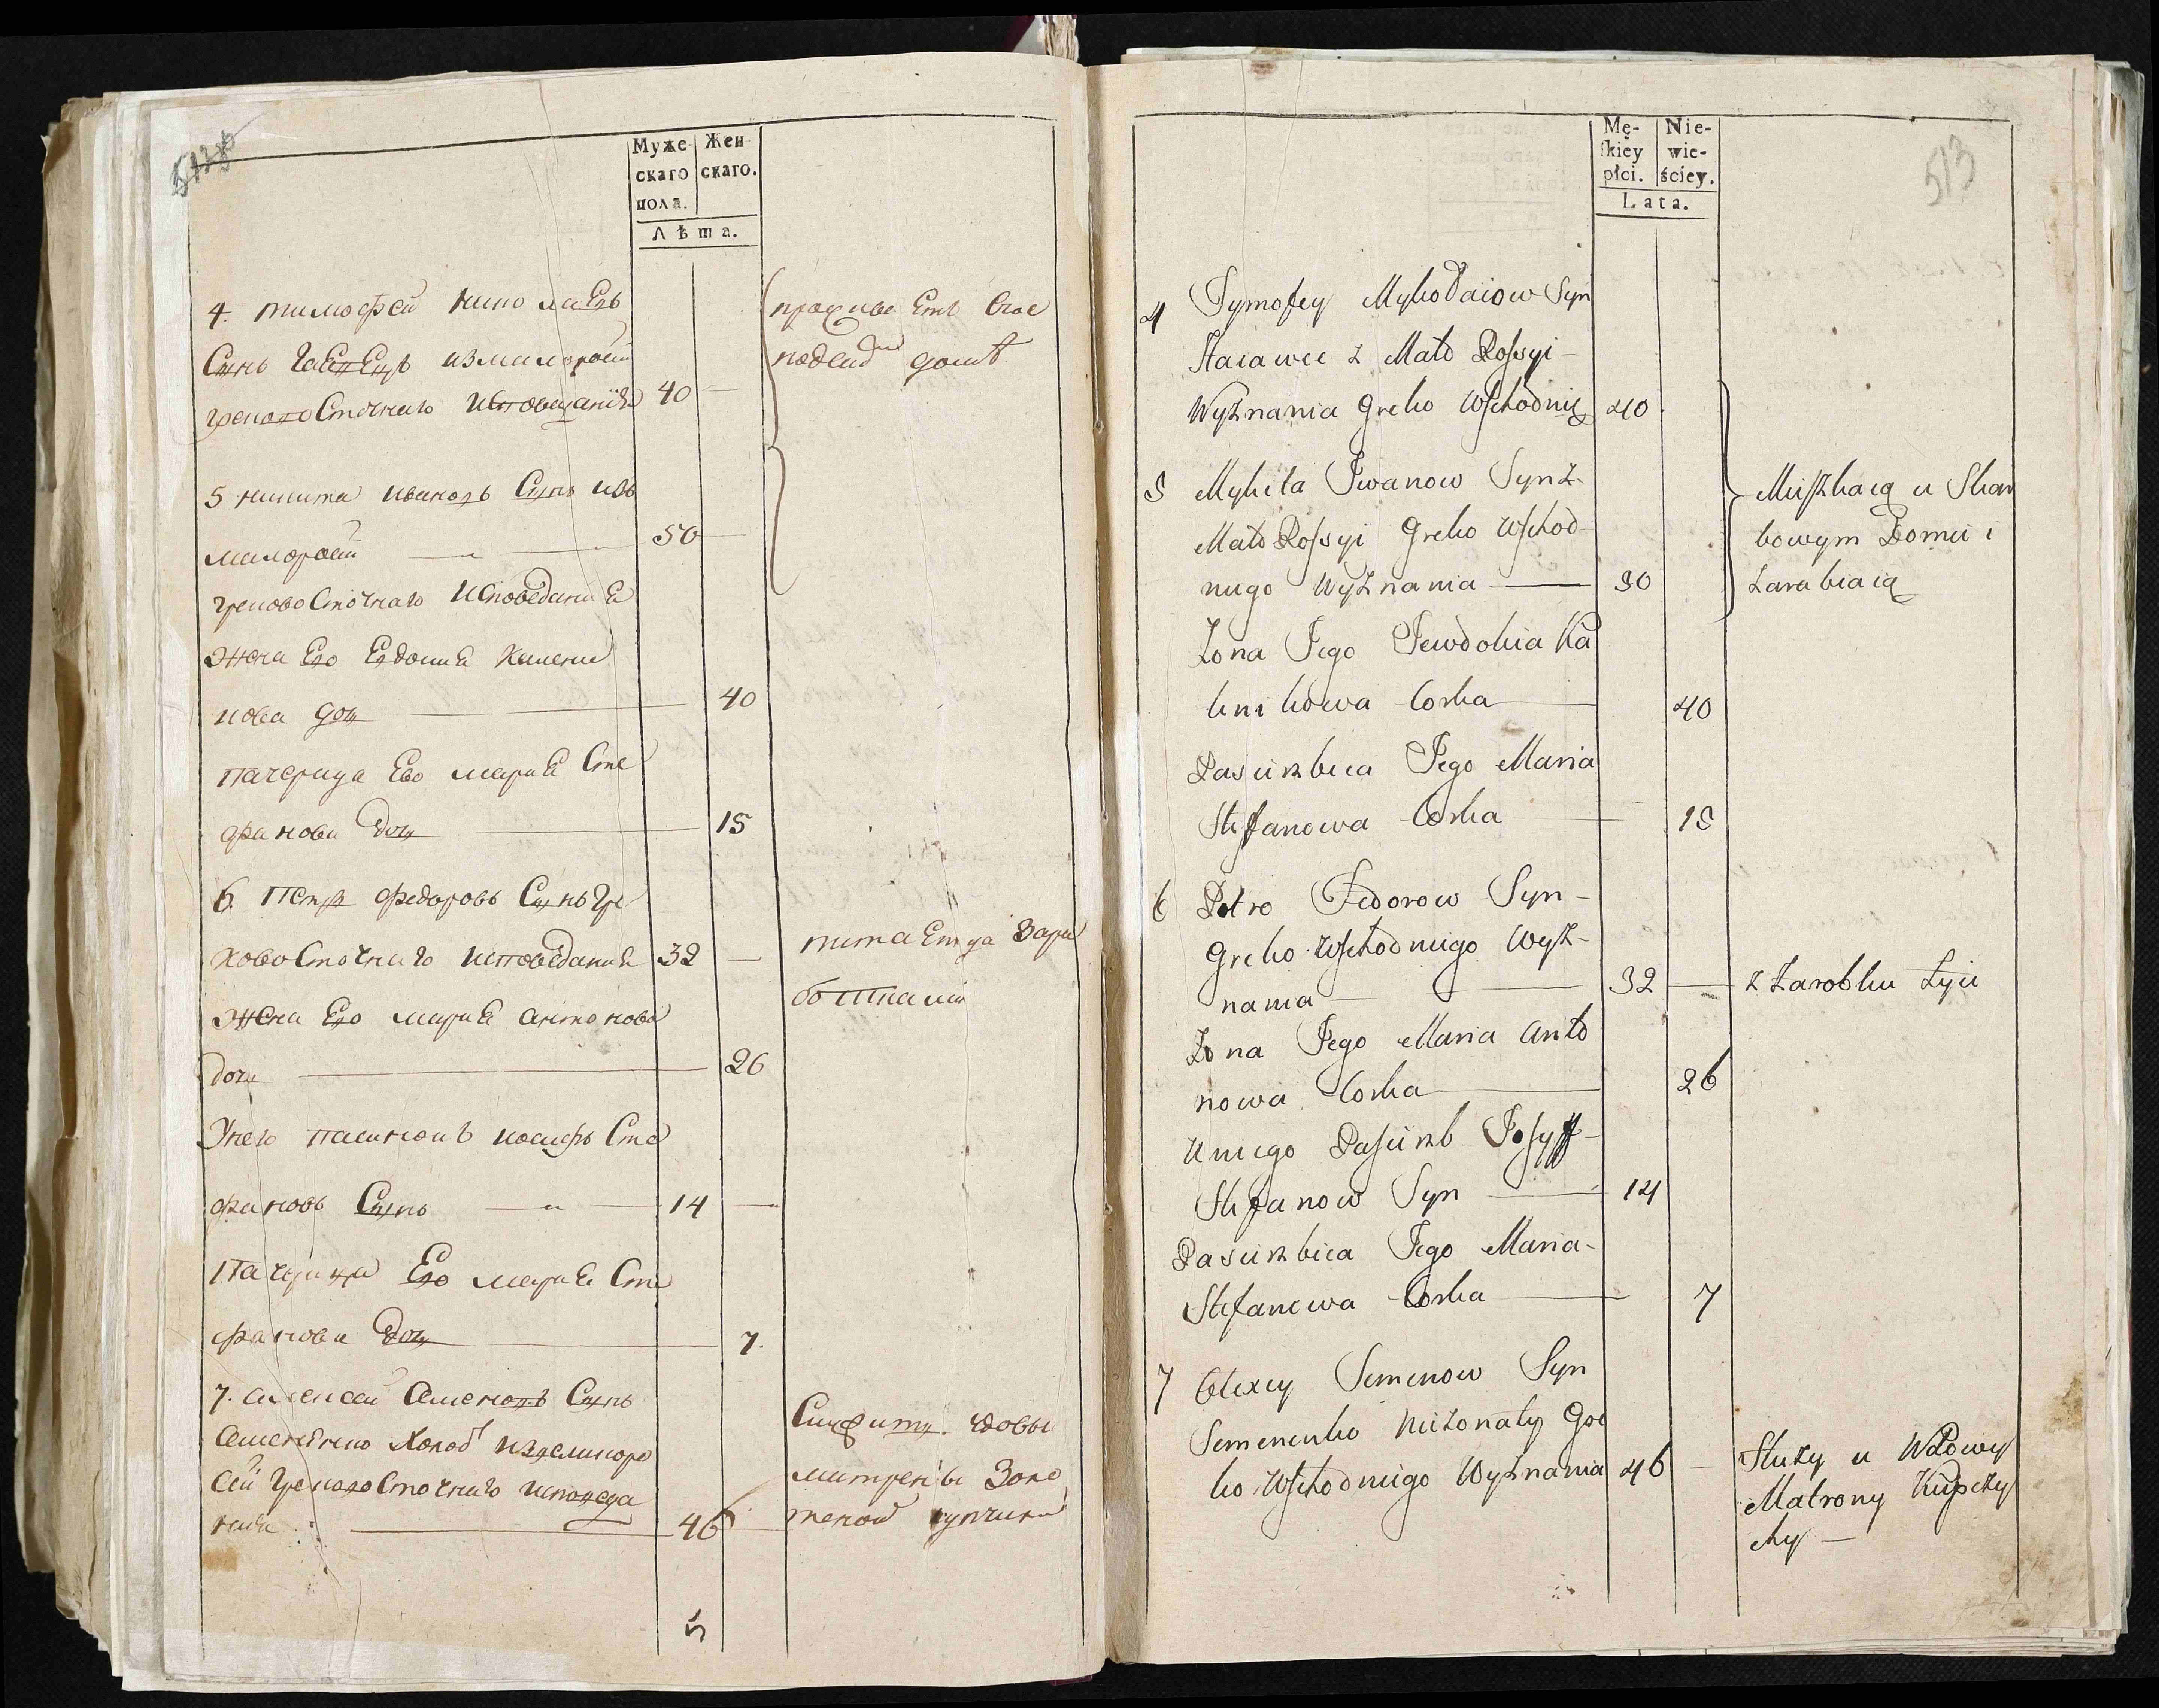 Муже-
скаго
пола.
Жен
скаго.
Лѣта.
4. тимофей николаевъ
Сынъ Гаевецъ измалоросии
греково Сточнаго Исповеданиѣ 40 —
проживаетъ вка
5 никита ивановъ Сынъ изъ
малоросии — 50 —
грековосточнаго Исповѣдания
жена Ево Евдокия
нова дочь — 40
Пачерица Ево мария Сте
фанова дочь — 15
6. Петръ федоровъ Сынъ Гре
ковосточнаго исповѣдания 32 —
питаетца Зара
ботками
жена Ево мария антонова
дочь — 26
Унего пасинокъ иосифъ Сте
фановъ Сынъ — 14 —
Пачерица Ево мария Сте
фанова дочь — 7.
7. алексей Семеновъ Сынъ
Семененко холостъ измалоро
сии грековосточнаго исповеда
ния — 46
Служитъ. вдовы
матрены
купчихи
5
513
Mę-
skiey
płci.
Nie-
wie-
ściey.
Lata.
4 Tymofey Mykołaiow Syn
Haiawec z Mało Rossyi
Wyznania Greko Wschodnię 40
5 Mykita Iwanow Syn z
Mało Rossyi Greko Wschod-
niego Wyznania — 30
Zona Iego Iewdokia Ka
linikowa Corka — 40
Pasierzbica Iego Maria
Stefanowa Corka — 15
Mieszkaią u Skar
bowym Domu i
Zarabiaią
6 Petro Fedorow Syn -
Greko Wschodniego Wyz-
nania — 32 —
z Zarobku Żyie
Zona Iego Maria Anto
nowa Corka — 26
U niego Pasierzb Iosyff
Stefanow Syn — 14
Pasierzbica Iego Maria-
Stefanowa Corka — 7
7 Olexey Semenow Syn
Semenenko nieżonaty Gre
ko Wschodniego Wyznania 46 —
Służy u Wdowy
Matrony Kupczy
chy —